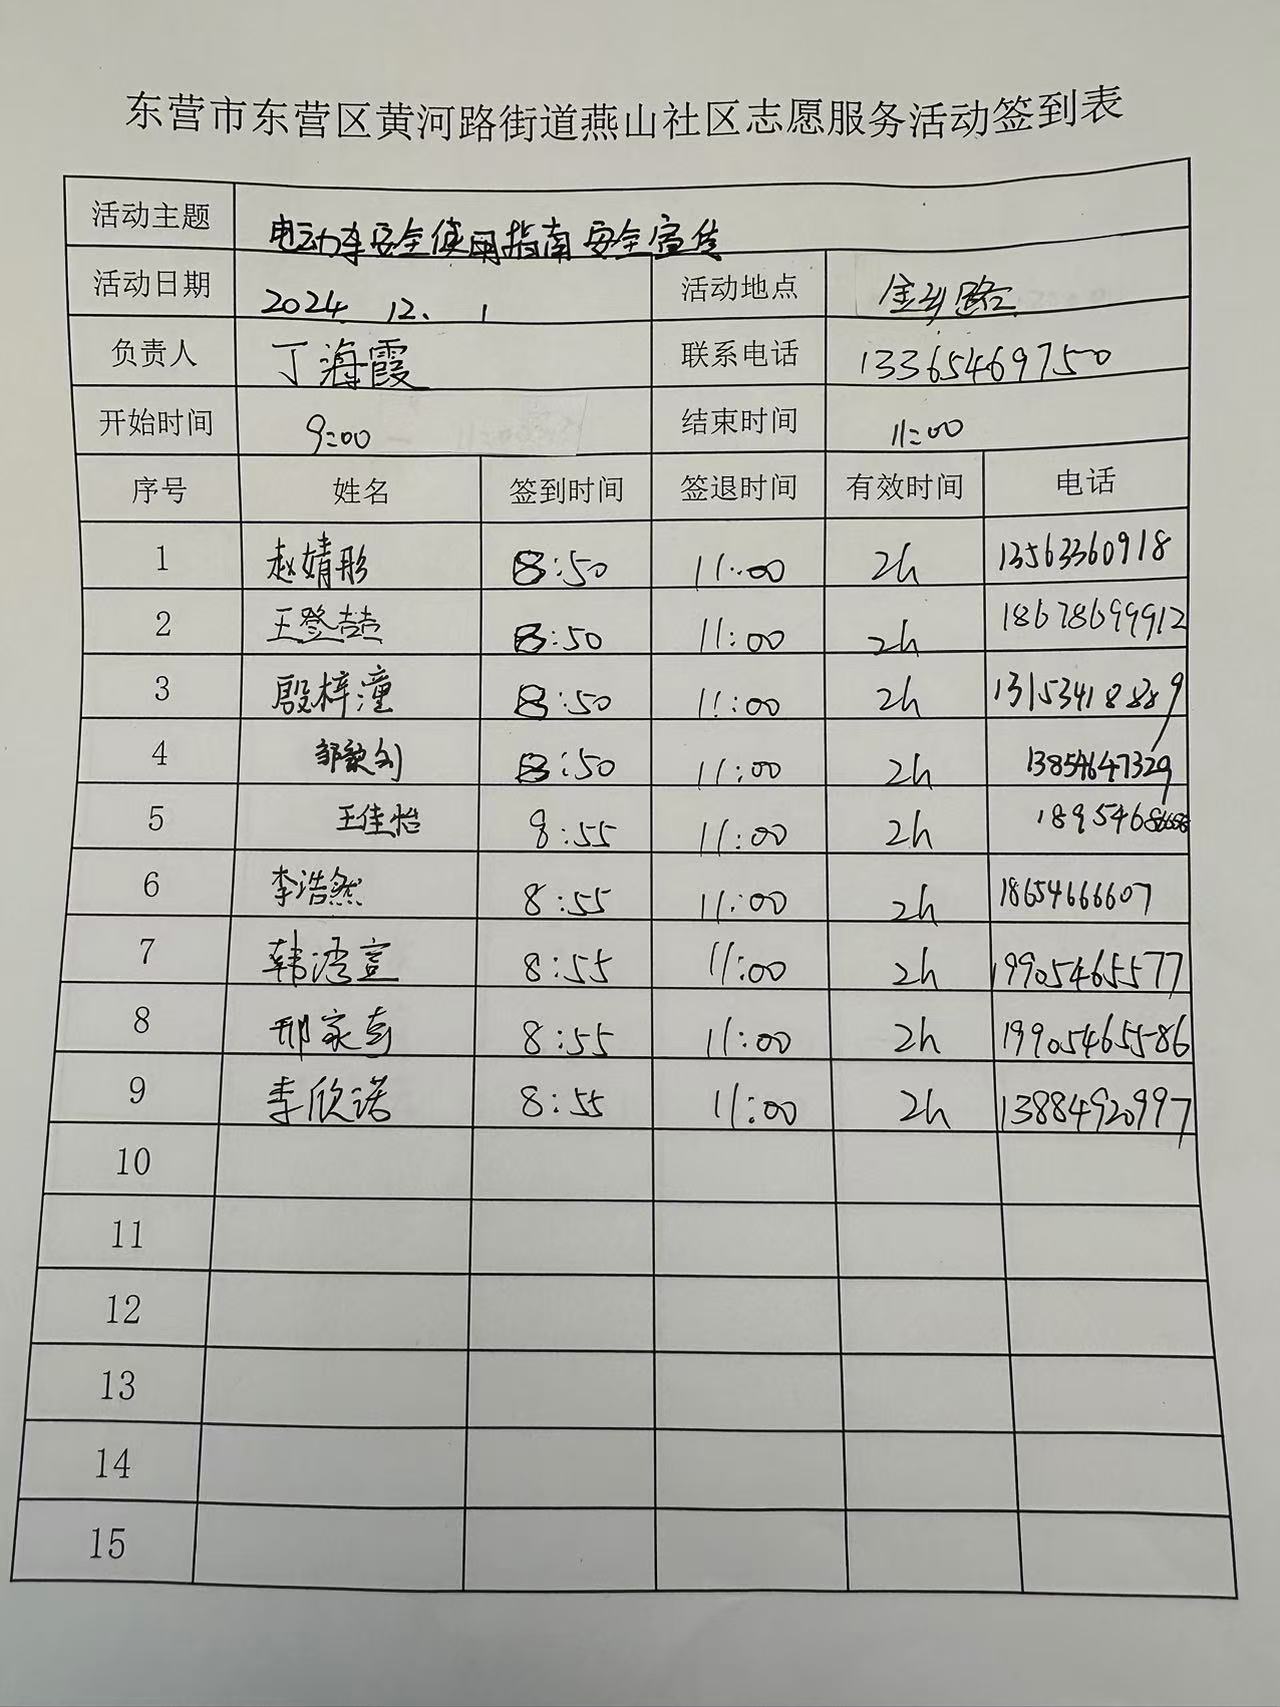 东营市东营区黄河路街道燕山社区志愿服务活动签到表
活动主题 电动车安全使用指南安全宣传
活动日期 2024. 12. 1 活动地点 金 路
负责人 丁海霞 联系电话 13365469750
开始时间 9:00 结束时间 11:00
序号 姓名 签到时间 签退时间 有效时间 电话
1 赵婧彤 8:50 11:00 2h 13563360918
2 王登喆 8:50 11:00 2h 18678699912
3 殷梓潼 8:50 11:00 2h 13153418889
4 邹 8:50 11:00 2h 13854647329
5 王佳怡 8:55 11:00 2h
6 李浩然 8:55 11:00 2h 18654666607
7 韩 萱 8:55 11:00 2h 19905465577
8 邢家 8:55 11:00 2h 19905465586
9 李欣诺 8:55 11:00 2h 13884920997
10
11
12
13
14
15